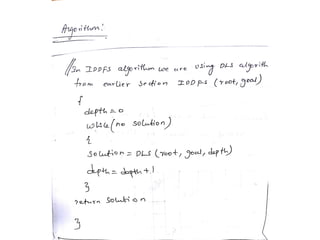 Algorithm:
//In IDDFS algorithm we are using DLS algorith
from earlier section IDDFS (root, goal)
{
depth=0
while(no solution)
{
solution = DLS (root, goal, depth)
depth = depth+1
}
return solution
}